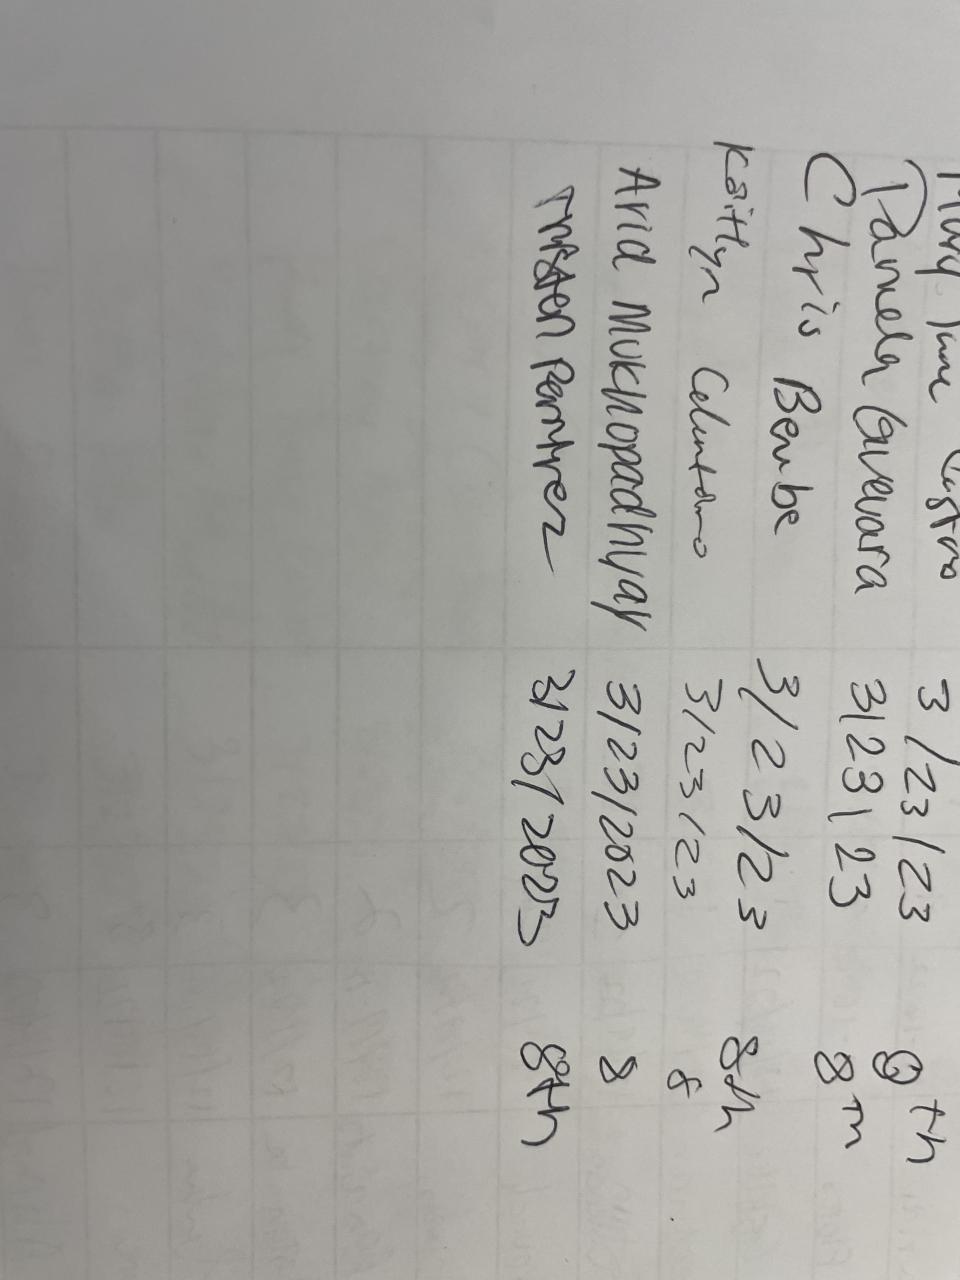 Mary Jane Castro 3/23/23 8th
Pamela Guevara 3/23/23 8th
Chris Berube 3/23/23 8th
Kaitlyn Celentano 3/23/23 8
Arid Mukhopadhyay 3/23/2023 8
Tristen 3/23/2023 8th